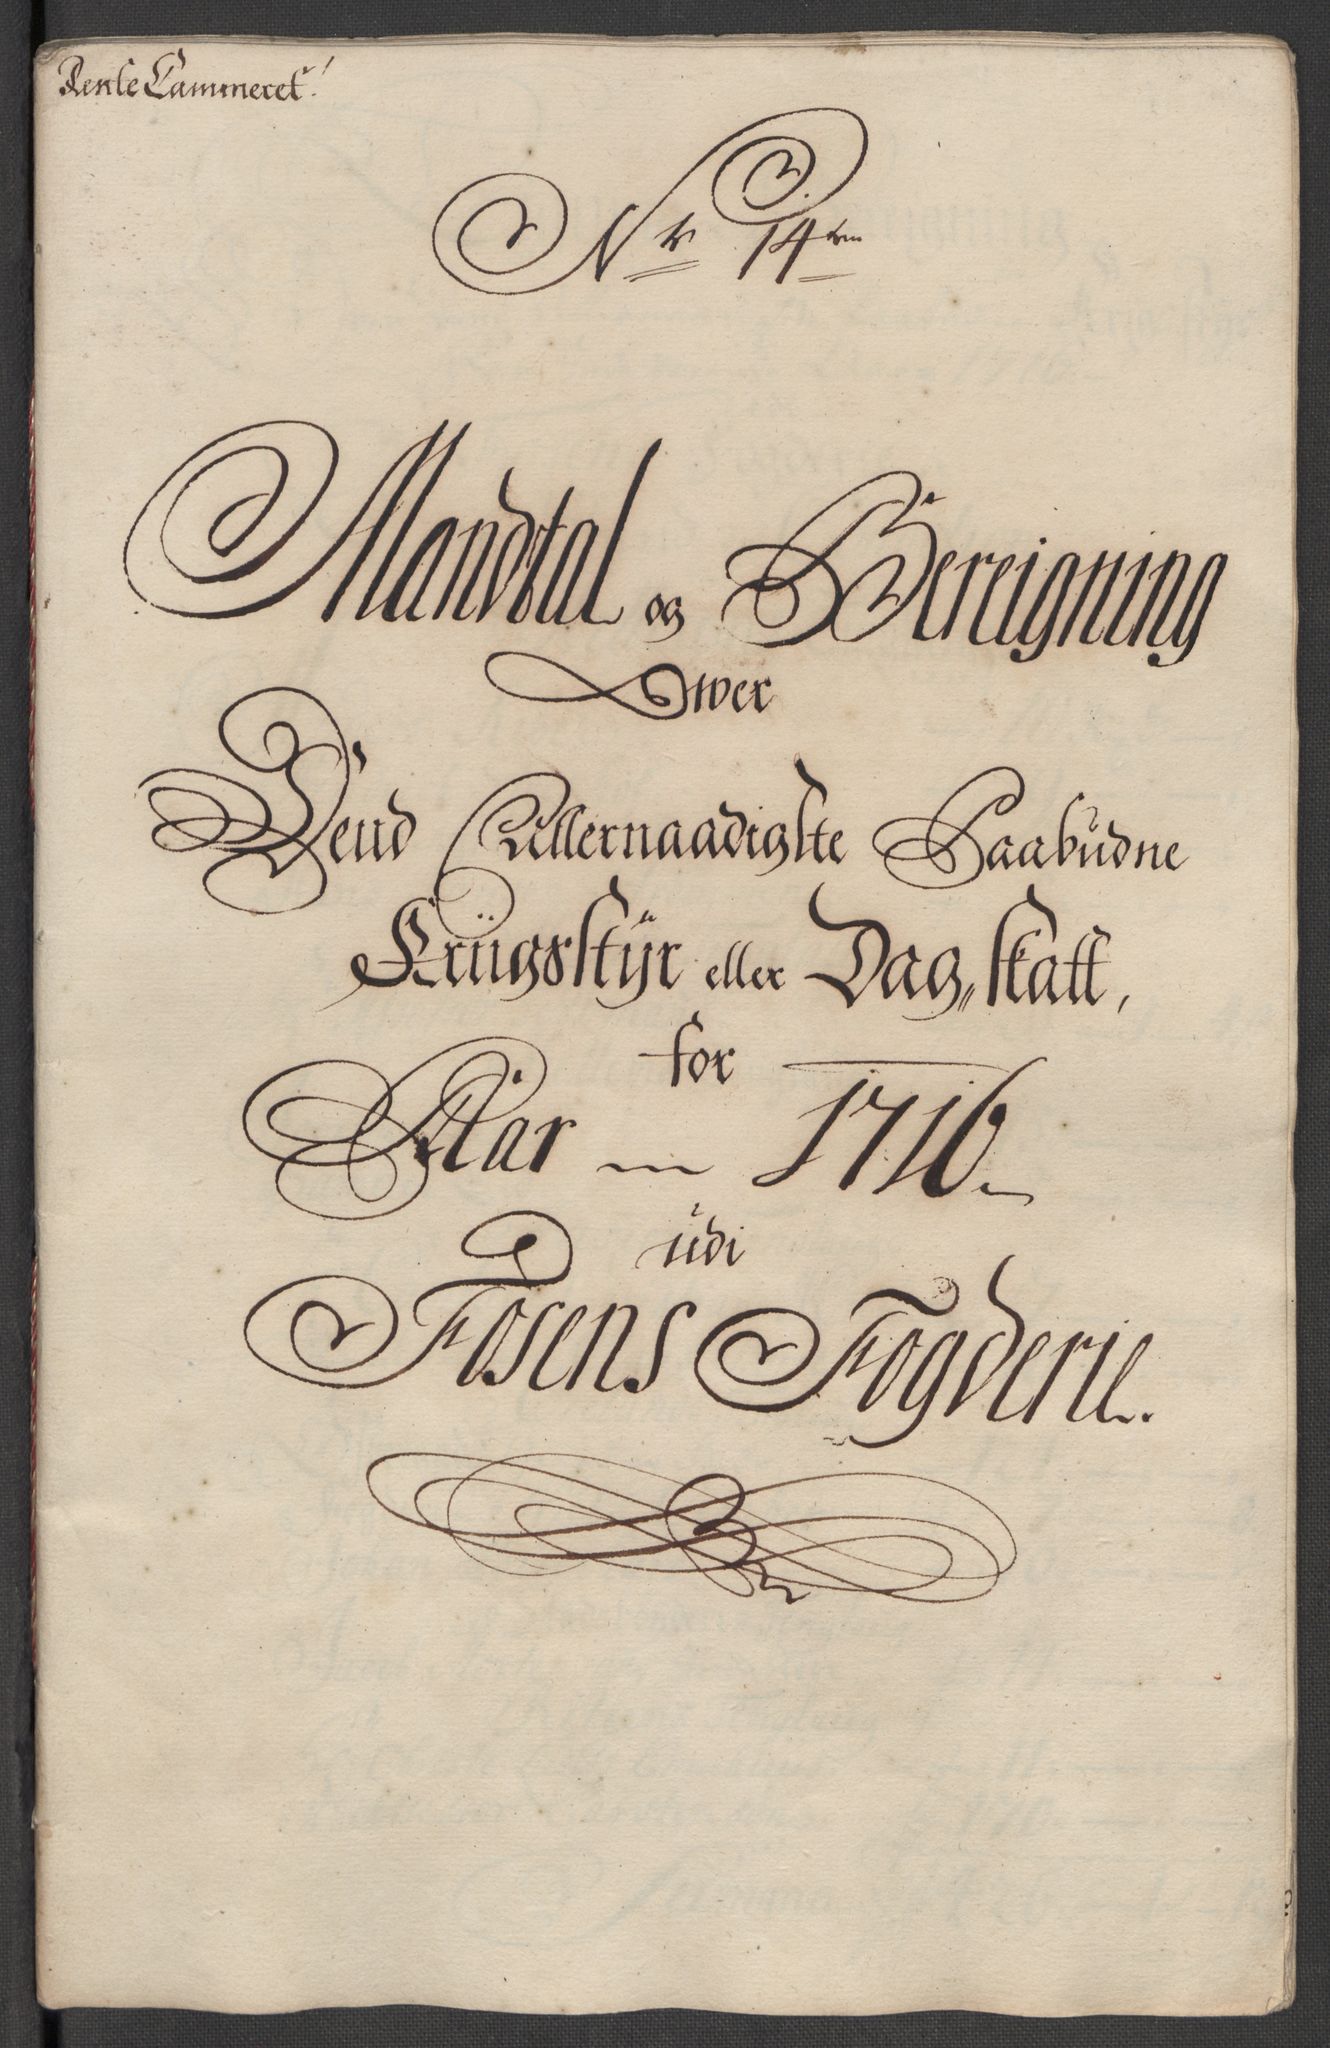 Rente Cammeret.
Nr 14ten
Mandtal og Bereigning
Over
Dend Allernaadigste Paabudne
Krügsstÿr eller Dag„skatt,
for
Aar 1716
udi
Fosens Fogderie.